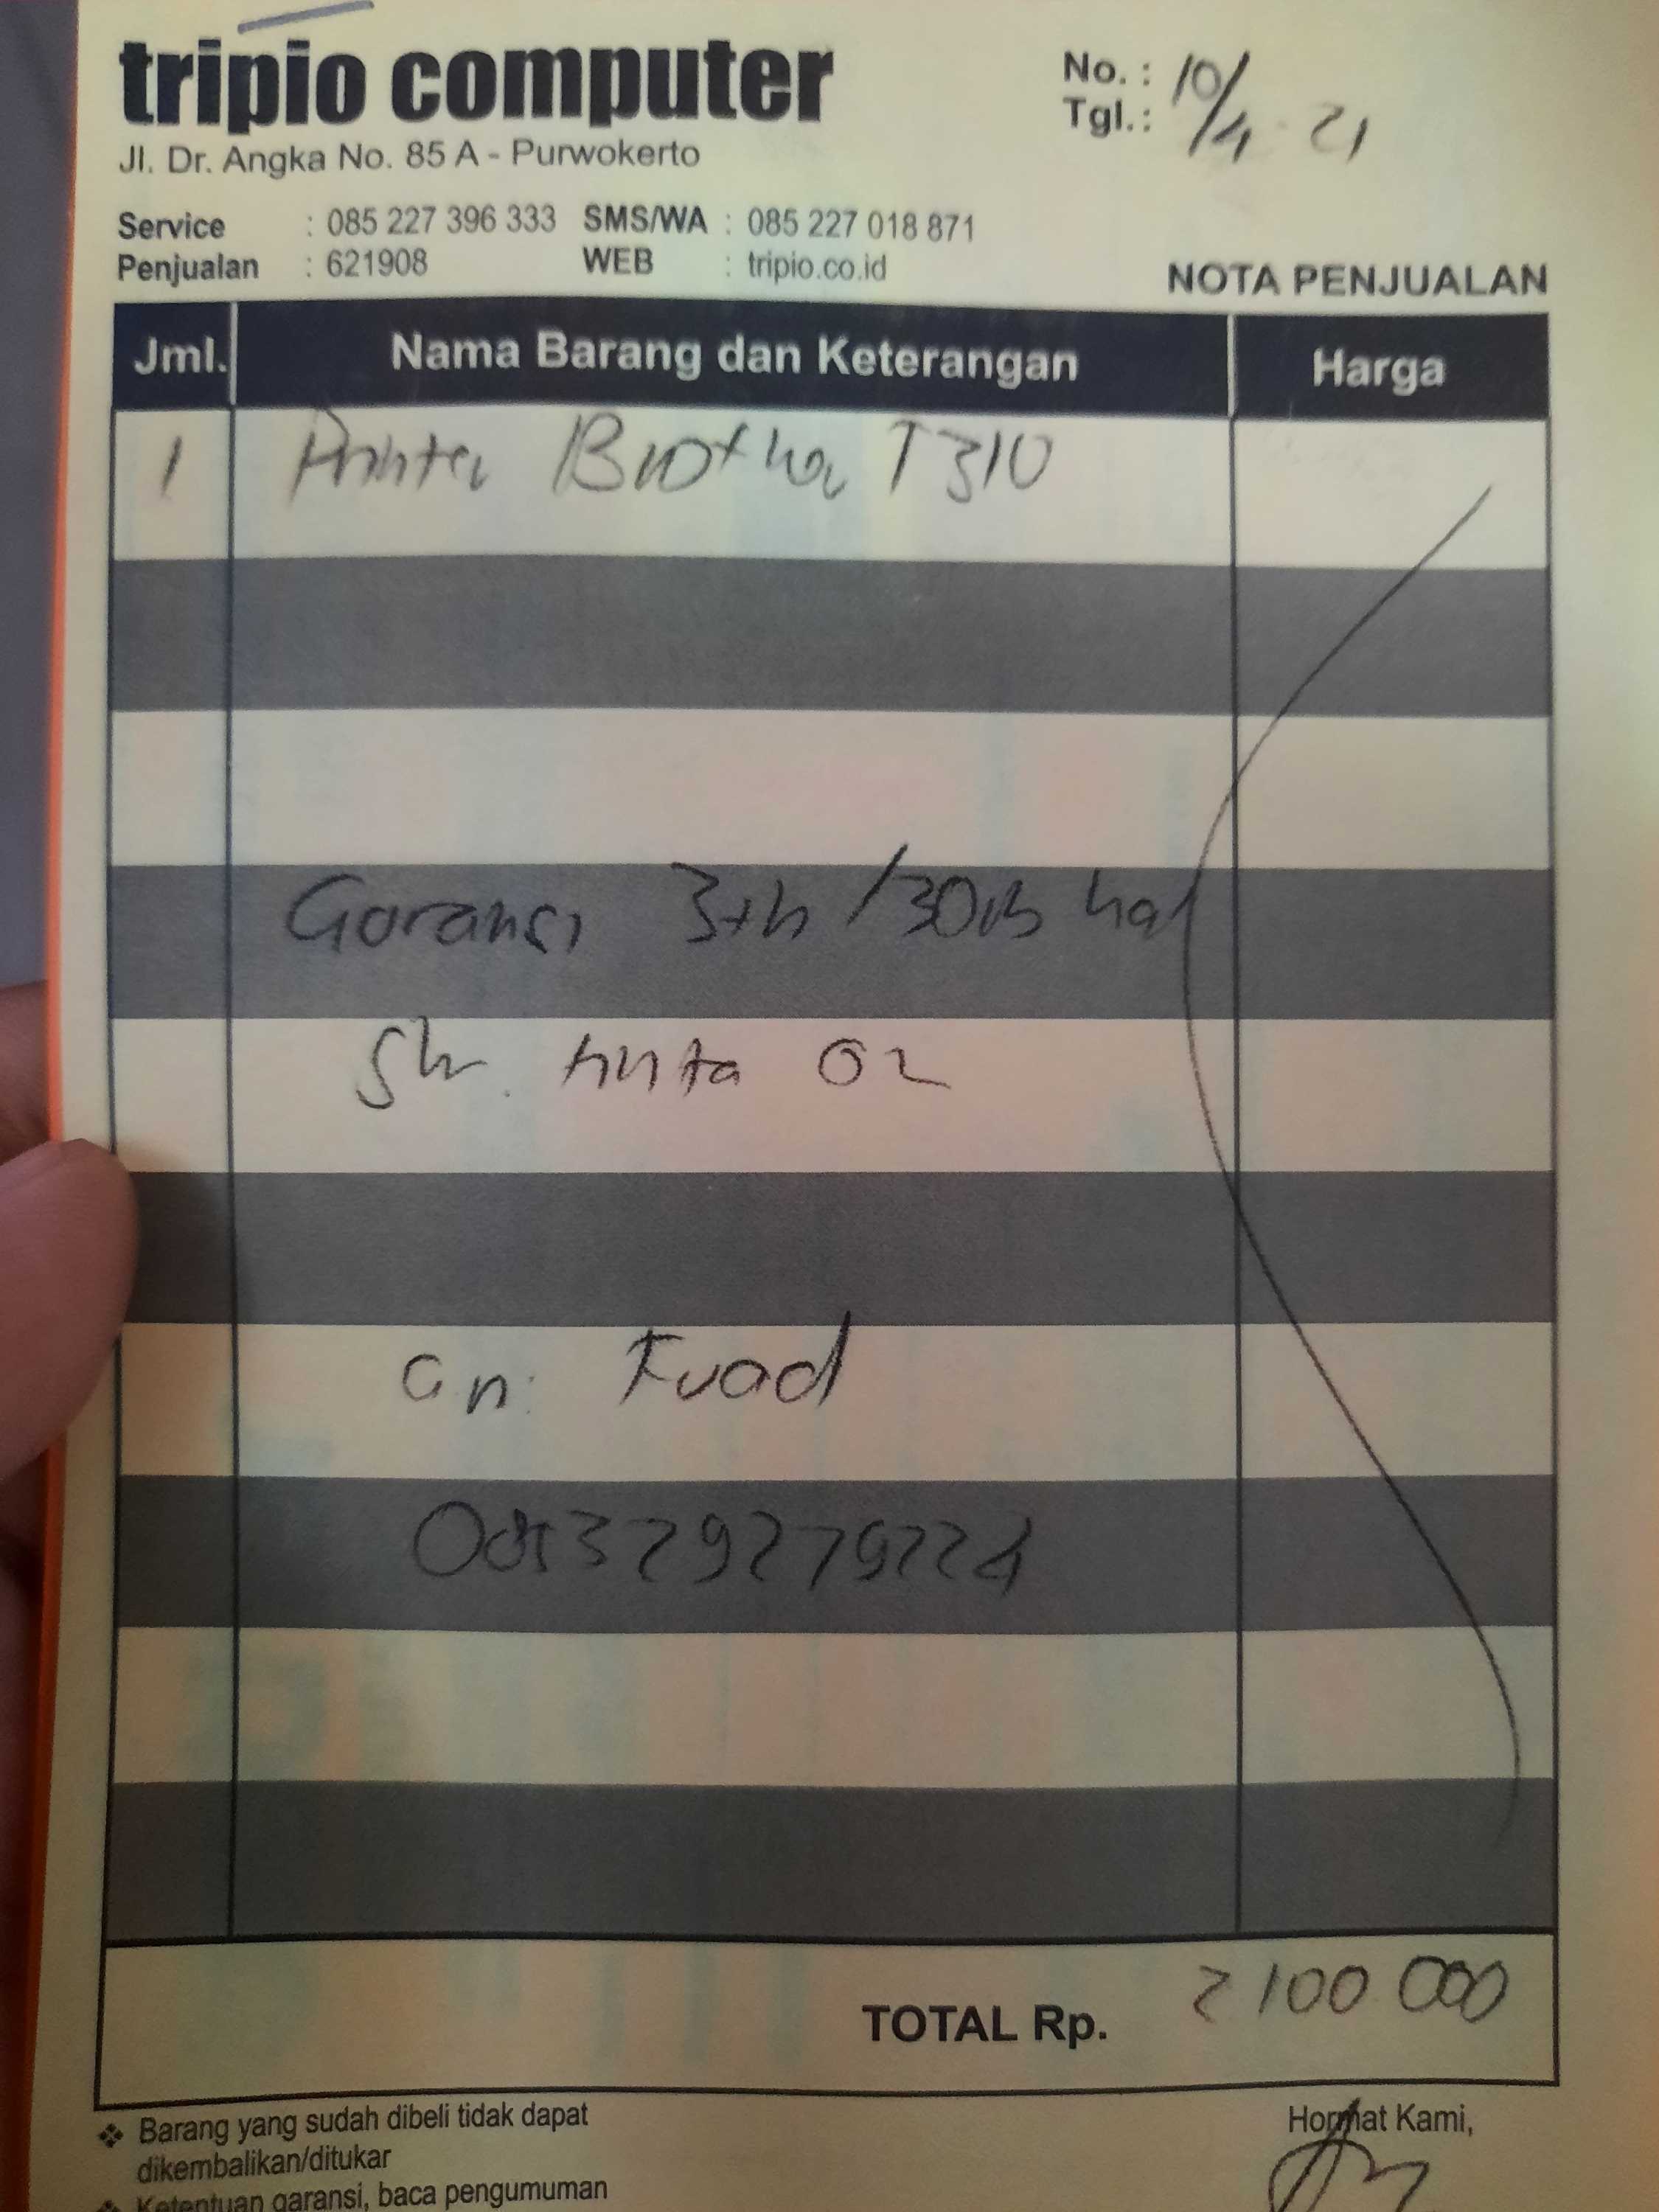 tripio computer
Jl. Dr. Angka No. 85 A - Purwokerto
No. :
Tgl. : 10/4 - 21
Service : 085 227 396 333 SMS/WA : 085 227 018 871
Penjualan : 621908 WEB : tripio.co.id
NOTA PENJUALAN
Jml. Nama Barang dan Keterangan Harga
1 Printer Brother T310
Garansi 3th /30rb hal
tinta 02
an. Fuad
TOTAL Rp. 2 100 000
❖ Barang yang sudah dibeli tidak dapat
dikembalikan/ditukar
Hormat Kami,
❖ Ketentuan garansi, baca pengumuman